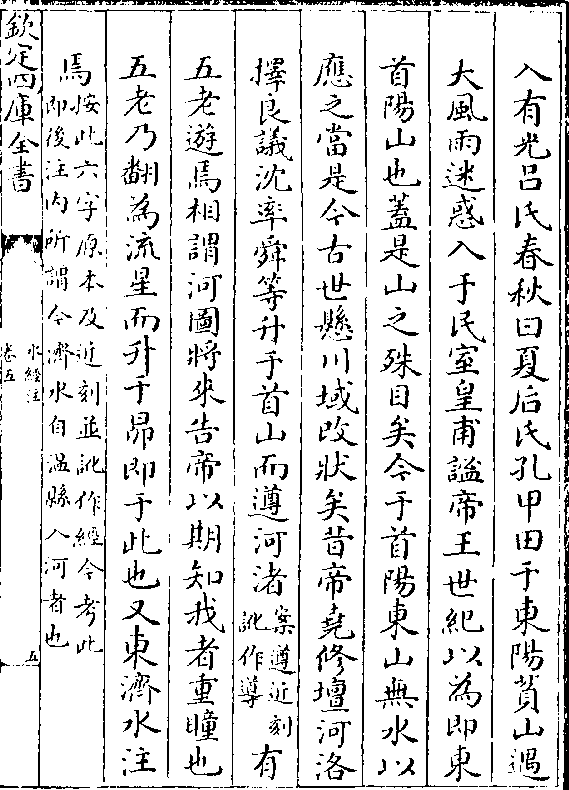 入有光吕氏春秋曰夏后氏孔甲田于東陽萯山遇
大風雨迷惑入于民室皇甫謐帝王世紀以為即東
首陽山也蓋是山之殊目矣今于首陽東山無水以
應之當是今古世懸川域改狀矣昔帝堯修壇河洛
擇良議沈率舜等升于首山而遵河渚案遵近刻訛作導有
五老遊焉相謂河圖將來告帝以期知我者重瞳也
五老乃翻為流星而升于昴即于此也又東濟水注
焉按此六字原本及近刻並訛作經今考此即後注内所謂今濟水自温縣入河者也
欽定四庫全書
水經注
卷五
五